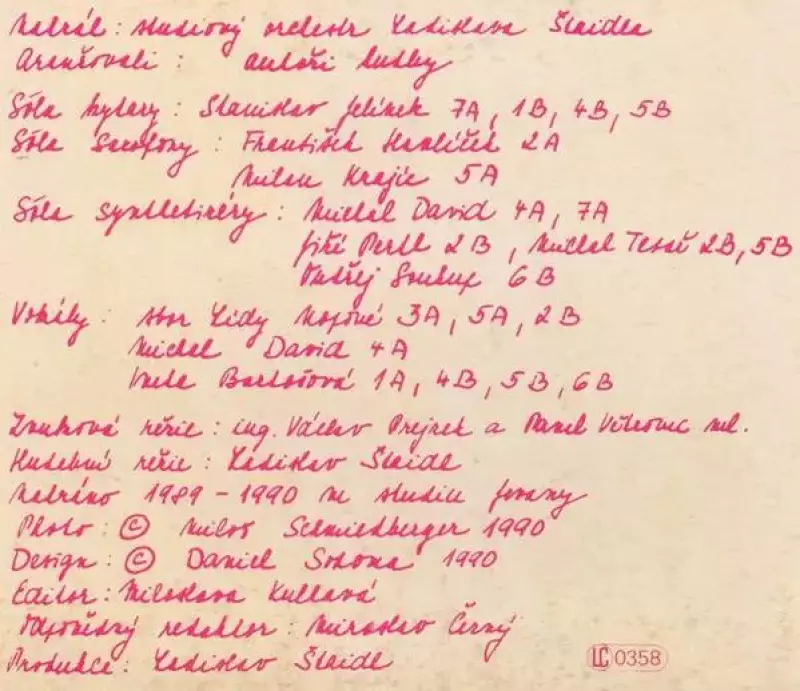 Nahrál: studiový orchestr Ladislava Štaidla
Aranžovali : autoři hudby
Sóla kytary : Stanislav Jelínek 7A, 1B, 4B, 5B
Sóla saxofony : František Havlíček 2A
Milan Krajíc 5A
Sóla syntetizéry : Michal David 4A, 7A
Jiří Pertl 2B, Michal Tesař 2B, 5B
Ondřej Soukup 6B
Vokály : sbor Lídy Nopové 3A, 5A, 2B
Michal David 4A
Bartošová 1A, 4B, 5B, 6B
Zvuková režie : ing. Václav a Pavel Větrovec ml.
Hudební režie : Ladislav Štaidl
Nahráno 1989 - 1990 ve studiu
Photo : © Miloš Schmiedberger 1990
Design : © Daniel 1990
Editor : Miloslava Kullavá
Odpovědný redaktor : Miroslav Černý
Produkce : Ladislav Štaidl
LC 0358